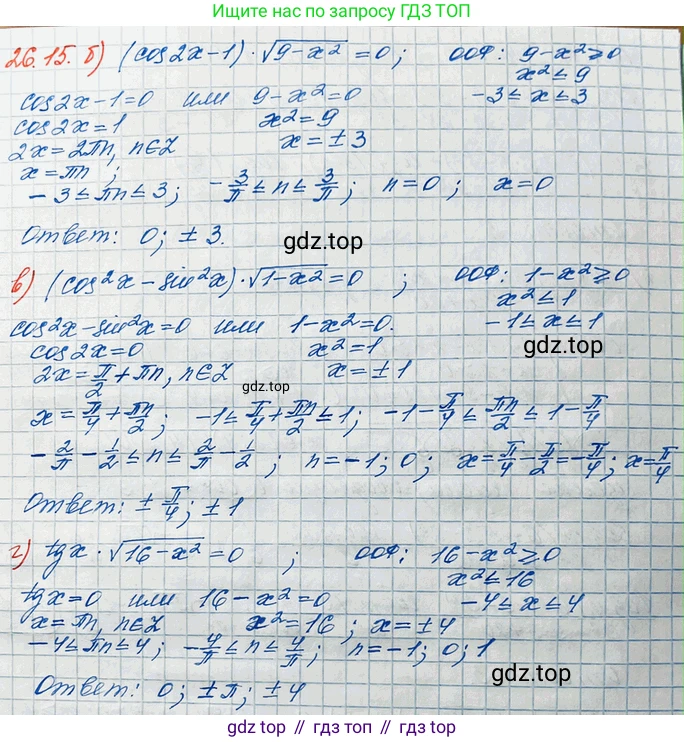 Ищите нас по запросу ГДЗ ТОП
26.15. б) (cos2x-1)·√(9-x²) =0; ООФ: 9-x²≥0
x²≤9
cos2x-1=0 или 9-x²=0 -3≤x≤3
cos2x=1 x²=9
2x=2πn, n∈Z x=±3
x=πn;
-3≤πn≤3; -3/π≤n≤3/π; n=0; x=0
Ответ: 0; ±3.
gdz.top
в) (cos²x-sin²x)·√(1-x²)=0; ООФ: 1-x²≥0
x²≤1
cos²x-sin²x=0 или 1-x²=0. -1≤x≤1
cos2x=0 x²=1
gdz.top
2x=π/2+πn, n∈Z x=±1
gdz.top
x=π/4+πn/2; -1≤π/4+πn/2≤1; -1-π/4≤πn/2≤1-π/4
-2/π-1/2≤n≤2/π-1/2; n=-1; 0; x=π/4-π/2=-π/4; x=π/4
Ответ: ±π/4; ±1
gdz.top
г) tgx·√(16-x²)=0; ООФ: 16-x²≥0
x²≤16
tgx=0 или 16-x²=0 -4≤x≤4
x=πn, n∈Z x²=16; x=±4
-4≤πn≤4; -4/π≤n≤4/π; n=-1; 0; 1
gdz.top
Ответ: 0; ±π; ±4
gdz.top // гдз топ // gdz.top